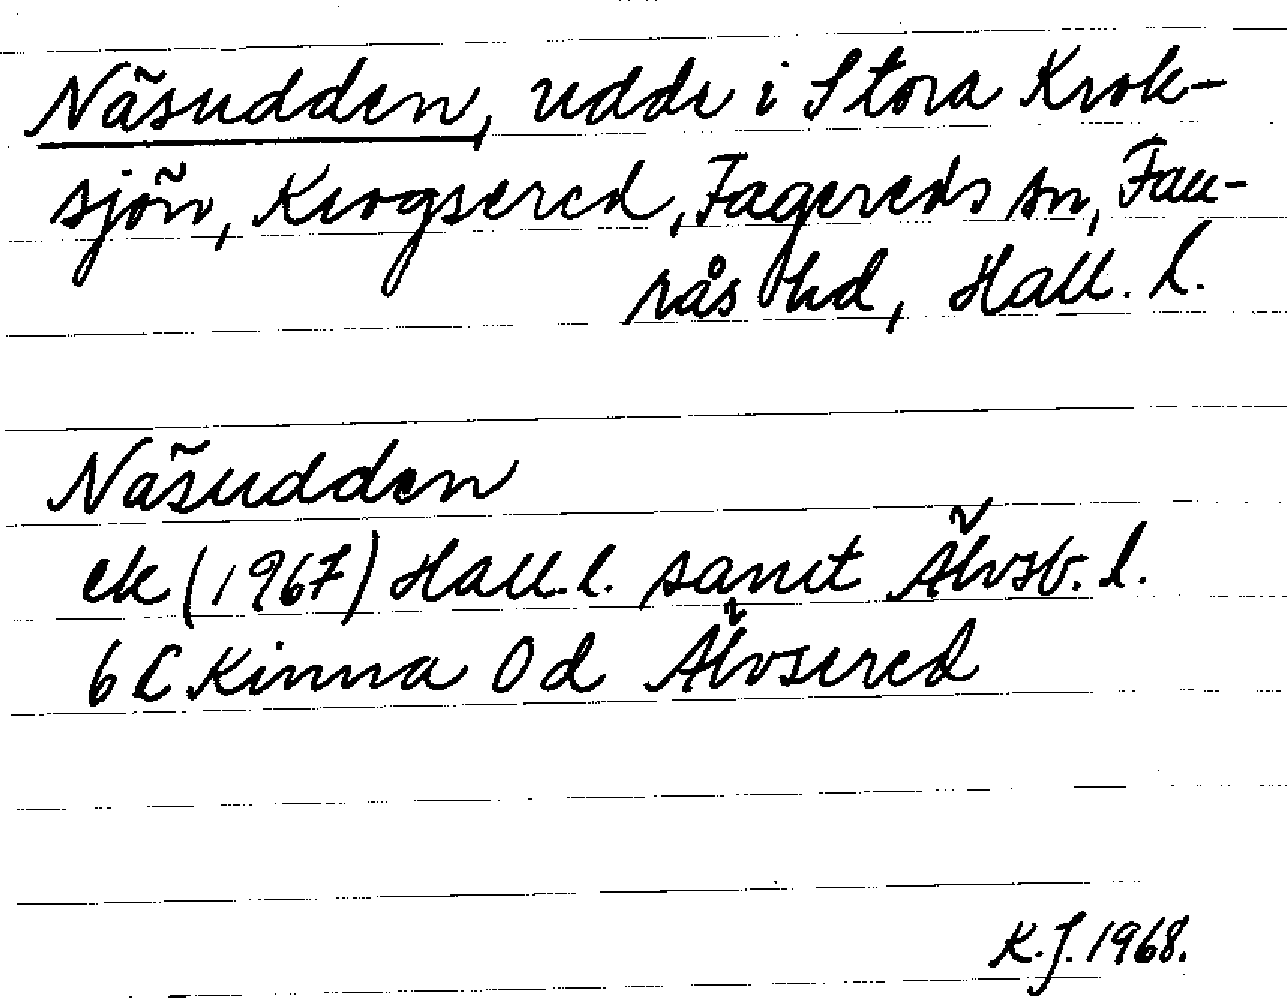 Näsudden, udde i Stora Krok-
sjön, Krogsered, Fagereds sn, Fau-
rås hd, Hall. l.
Näsudden
ek (1967) Hall. l. samt Älvsb. l.
6C Kinna 0d Älvsered
K.J. 1968.